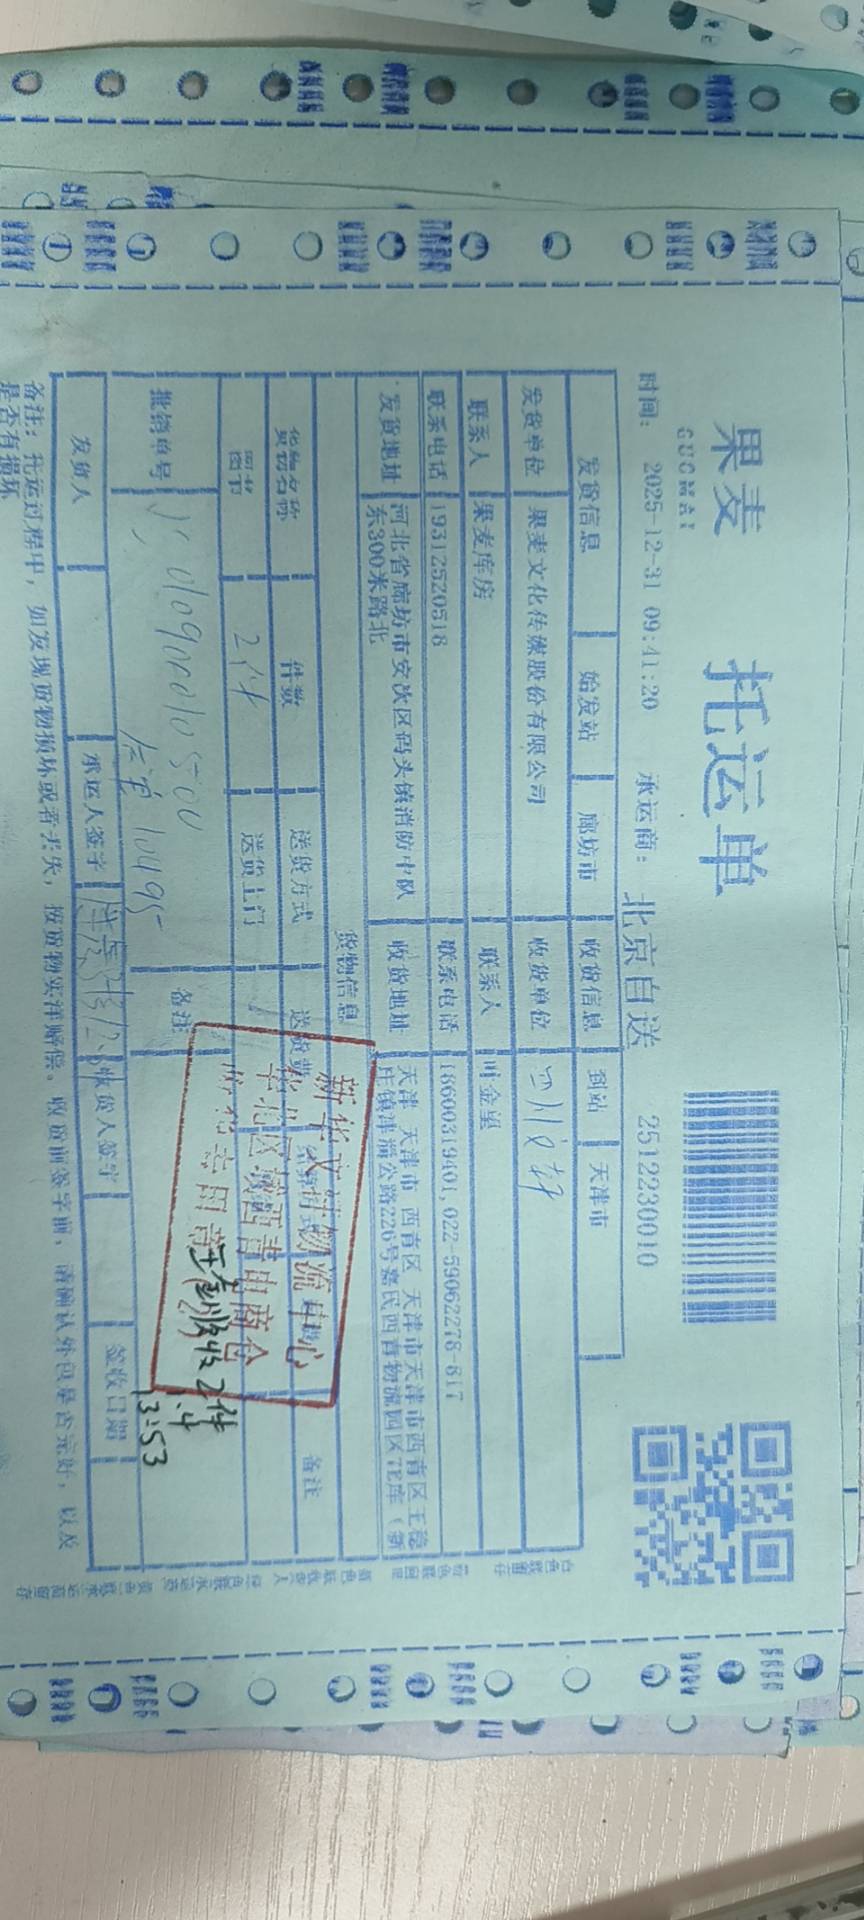 果麦 托运单
GUOMAI
时间: 2025-12-31 09:41:20 承运商: 北京自送 2512230010
发货信息 始发站 廊坊市 收货信息 到站 天津市
发货单位 果麦文化传媒股份有限公司 收货单位 四川文轩
联系人 果麦库房 联系人 叶金星
联系电话 19312520518 联系电话 18600319401, 022-59062278-817
发货地址 河北省廊坊市安次区码头镇消防中队东300米路北 收货地址 天津 天津市 西青区 天津市天津市西青区王稳庄镇津淄公路226号嘉民西青物流园区7E库(新
货物信息
货物名称 件数 送货方式 送货费 备注
图书 2件 送货上门
批销单号 备注
新华文轩物流中心
华北区域西青电商仓
收货专用章
实收2件
1.4
13:53
发货人 承运人签字 收货人签字 签收日期
备注: 托运过程中, 如发现货物损坏或者丢失, 按货物实洋赔偿。收货前签字前, 请确认外包是否完好, 以及是否有损坏